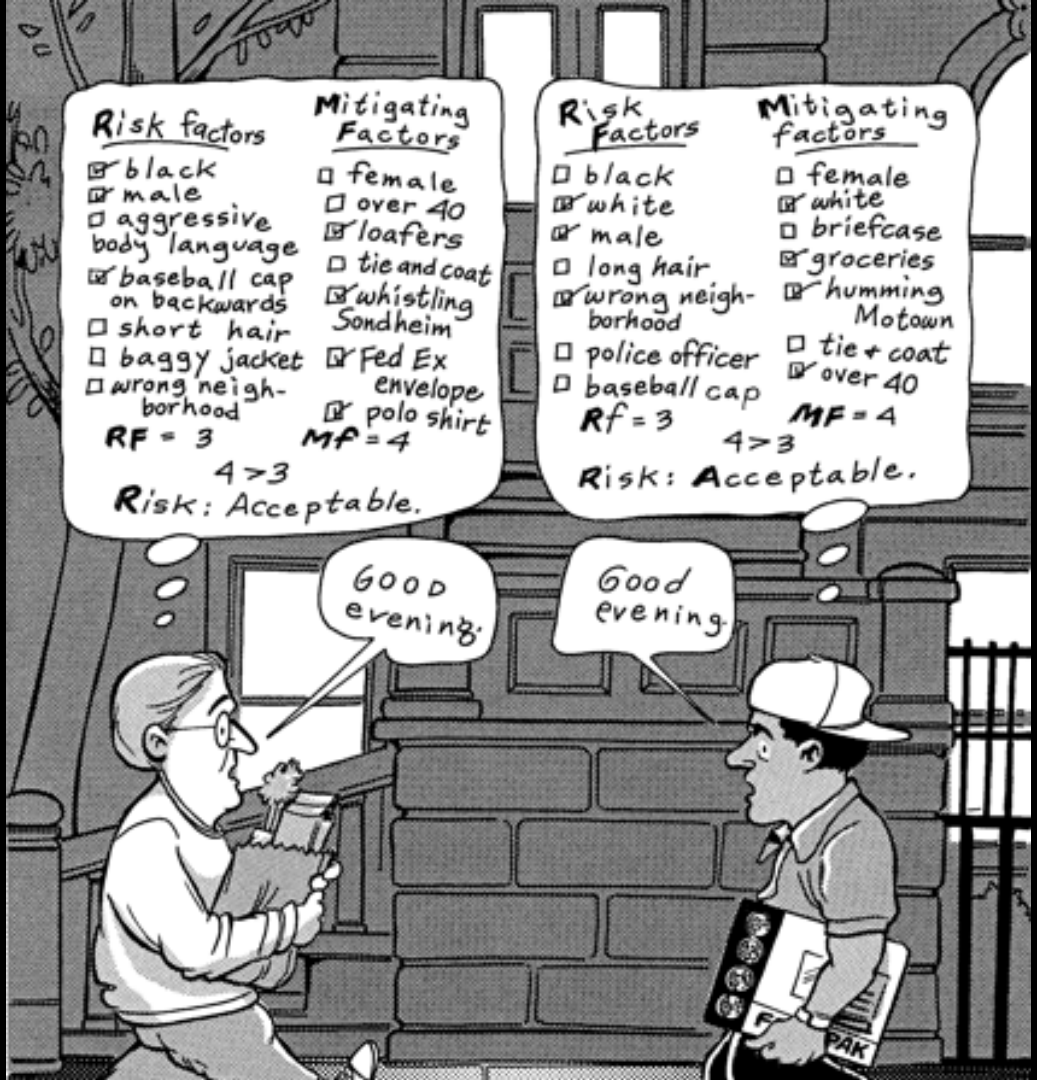 Risk factors
☑ black
☑ male
☐ aggressive
body language
☑ baseball cap
on backwards
☐ short hair
☐ baggy jacket
☐ wrong neigh-
borhood
RF = 3
Mitigating
Factors
☐ female
☐ over 40
☑ loafers
☐ tie and coat
☑ whistling
Sondheim
☑ Fed Ex
envelope
☑ polo shirt
Mf = 4
4>3
Risk: Acceptable.
Risk
Factors
☐ black
☑ white
☑ male
☐ long hair
☑ wrong neigh-
borhood
☐ police officer
☐ baseball cap
Rf = 3
Mitigating
factors
☐ female
☑ white
☐ briefcase
☑ groceries
☑ humming
Motown
☐ tie + coat
☑ over 40
MF = 4
4>3
Risk: Acceptable.
GOOD
evening.
Good
evening.
PAK